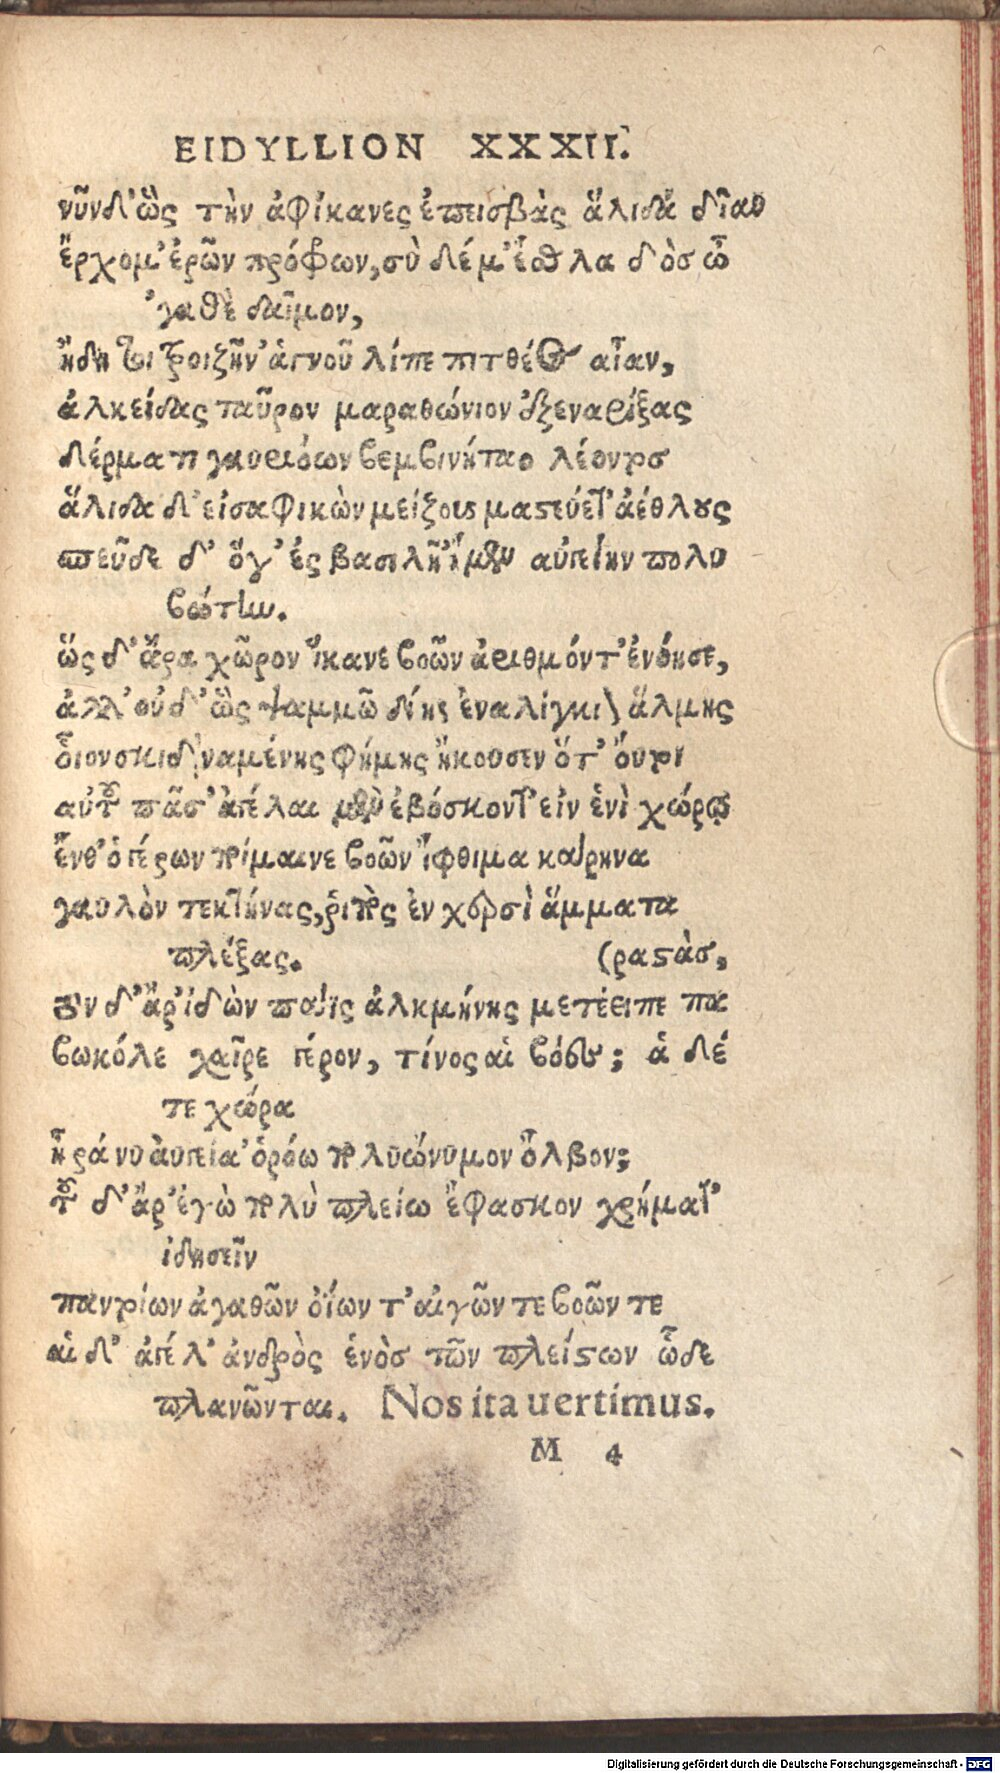 EIDYLLION XXXII.
νῦν δ' ὣς τὴν ἀφίκανες ἐπεισβὰς ἄλιδα δῖαν
ἔρχομ' ἐρῶν πρόφρων, σὺ δέ μ' ἐσθλὰ δὸς ὦ
'γαθὲ δαῖμον,
ἤδη τοι τροιζῆν' ἁγνοῦ λίπε πιτθέος αἶαν,
ἀλκείδας ταῦρον μαραθώνιον ἐξεναρίξας
δέρματι γαυριόων βεμβινήταο λέοντος
ἄλιδα δ' εἰσαφικὼν μείζους μαστεύετ' ἀέθλους
σπεῦδε δ' ὅγ' ἐς βασιλῆϊ μὲν αὐτείην πολυ
βώτην.
ὥς δ' ἄρα χῶρον ἵκανε βοῶν ἀριθμόν τ' ἐνόησε,
ἀλλ' οὐδ' ὣς ψαμμῶ δίης ἐναλίγκιον ἅλμης
φήμης ἤκουσεν ὅτ'
αὐτοῦ πᾶσ' ἀτέλαι μὲν ἐβόσκοντ' εἰν ἑνὶ χώρῳ
ἔνθ' ὁ γέρων ποίμαινε βοῶν ἴφθιμα κάρηνα
γαυλὸν τεκτήνας, ῥιπὸς ἐν χερσὶ ἅμματα
πλέξας. (ραστὰς,
τὸν δ' ἄρ' ἰδὼν παῖς ἀλκμήνης μετέειπε πα
βωκόλε χαῖρε γέρον, τίνος αἱ βόες; ἁ δέ
τε χώρα
ἦ ῥά νυ αὐγεία' ὁρόω πολυώνυμον ὄλβον;
τοῦ δ' ἄρ' ἐγὼ πολὺ πλείω ἔφασκον χρήματ'
ἰδησεῖν
παντοίων ἀγαθῶν ὀΐων τ' αἰγῶν τε βοῶν τε
αἱ δ' ἀγέλ' ἀνδρὸς ἑνὸς τῶν πλείστων ὧδε
πλανῶνται. Nos ita uertimus.
M 4
Digitalisierung gefördert durch die Deutsche Forschungsgemeinschaft - DFG